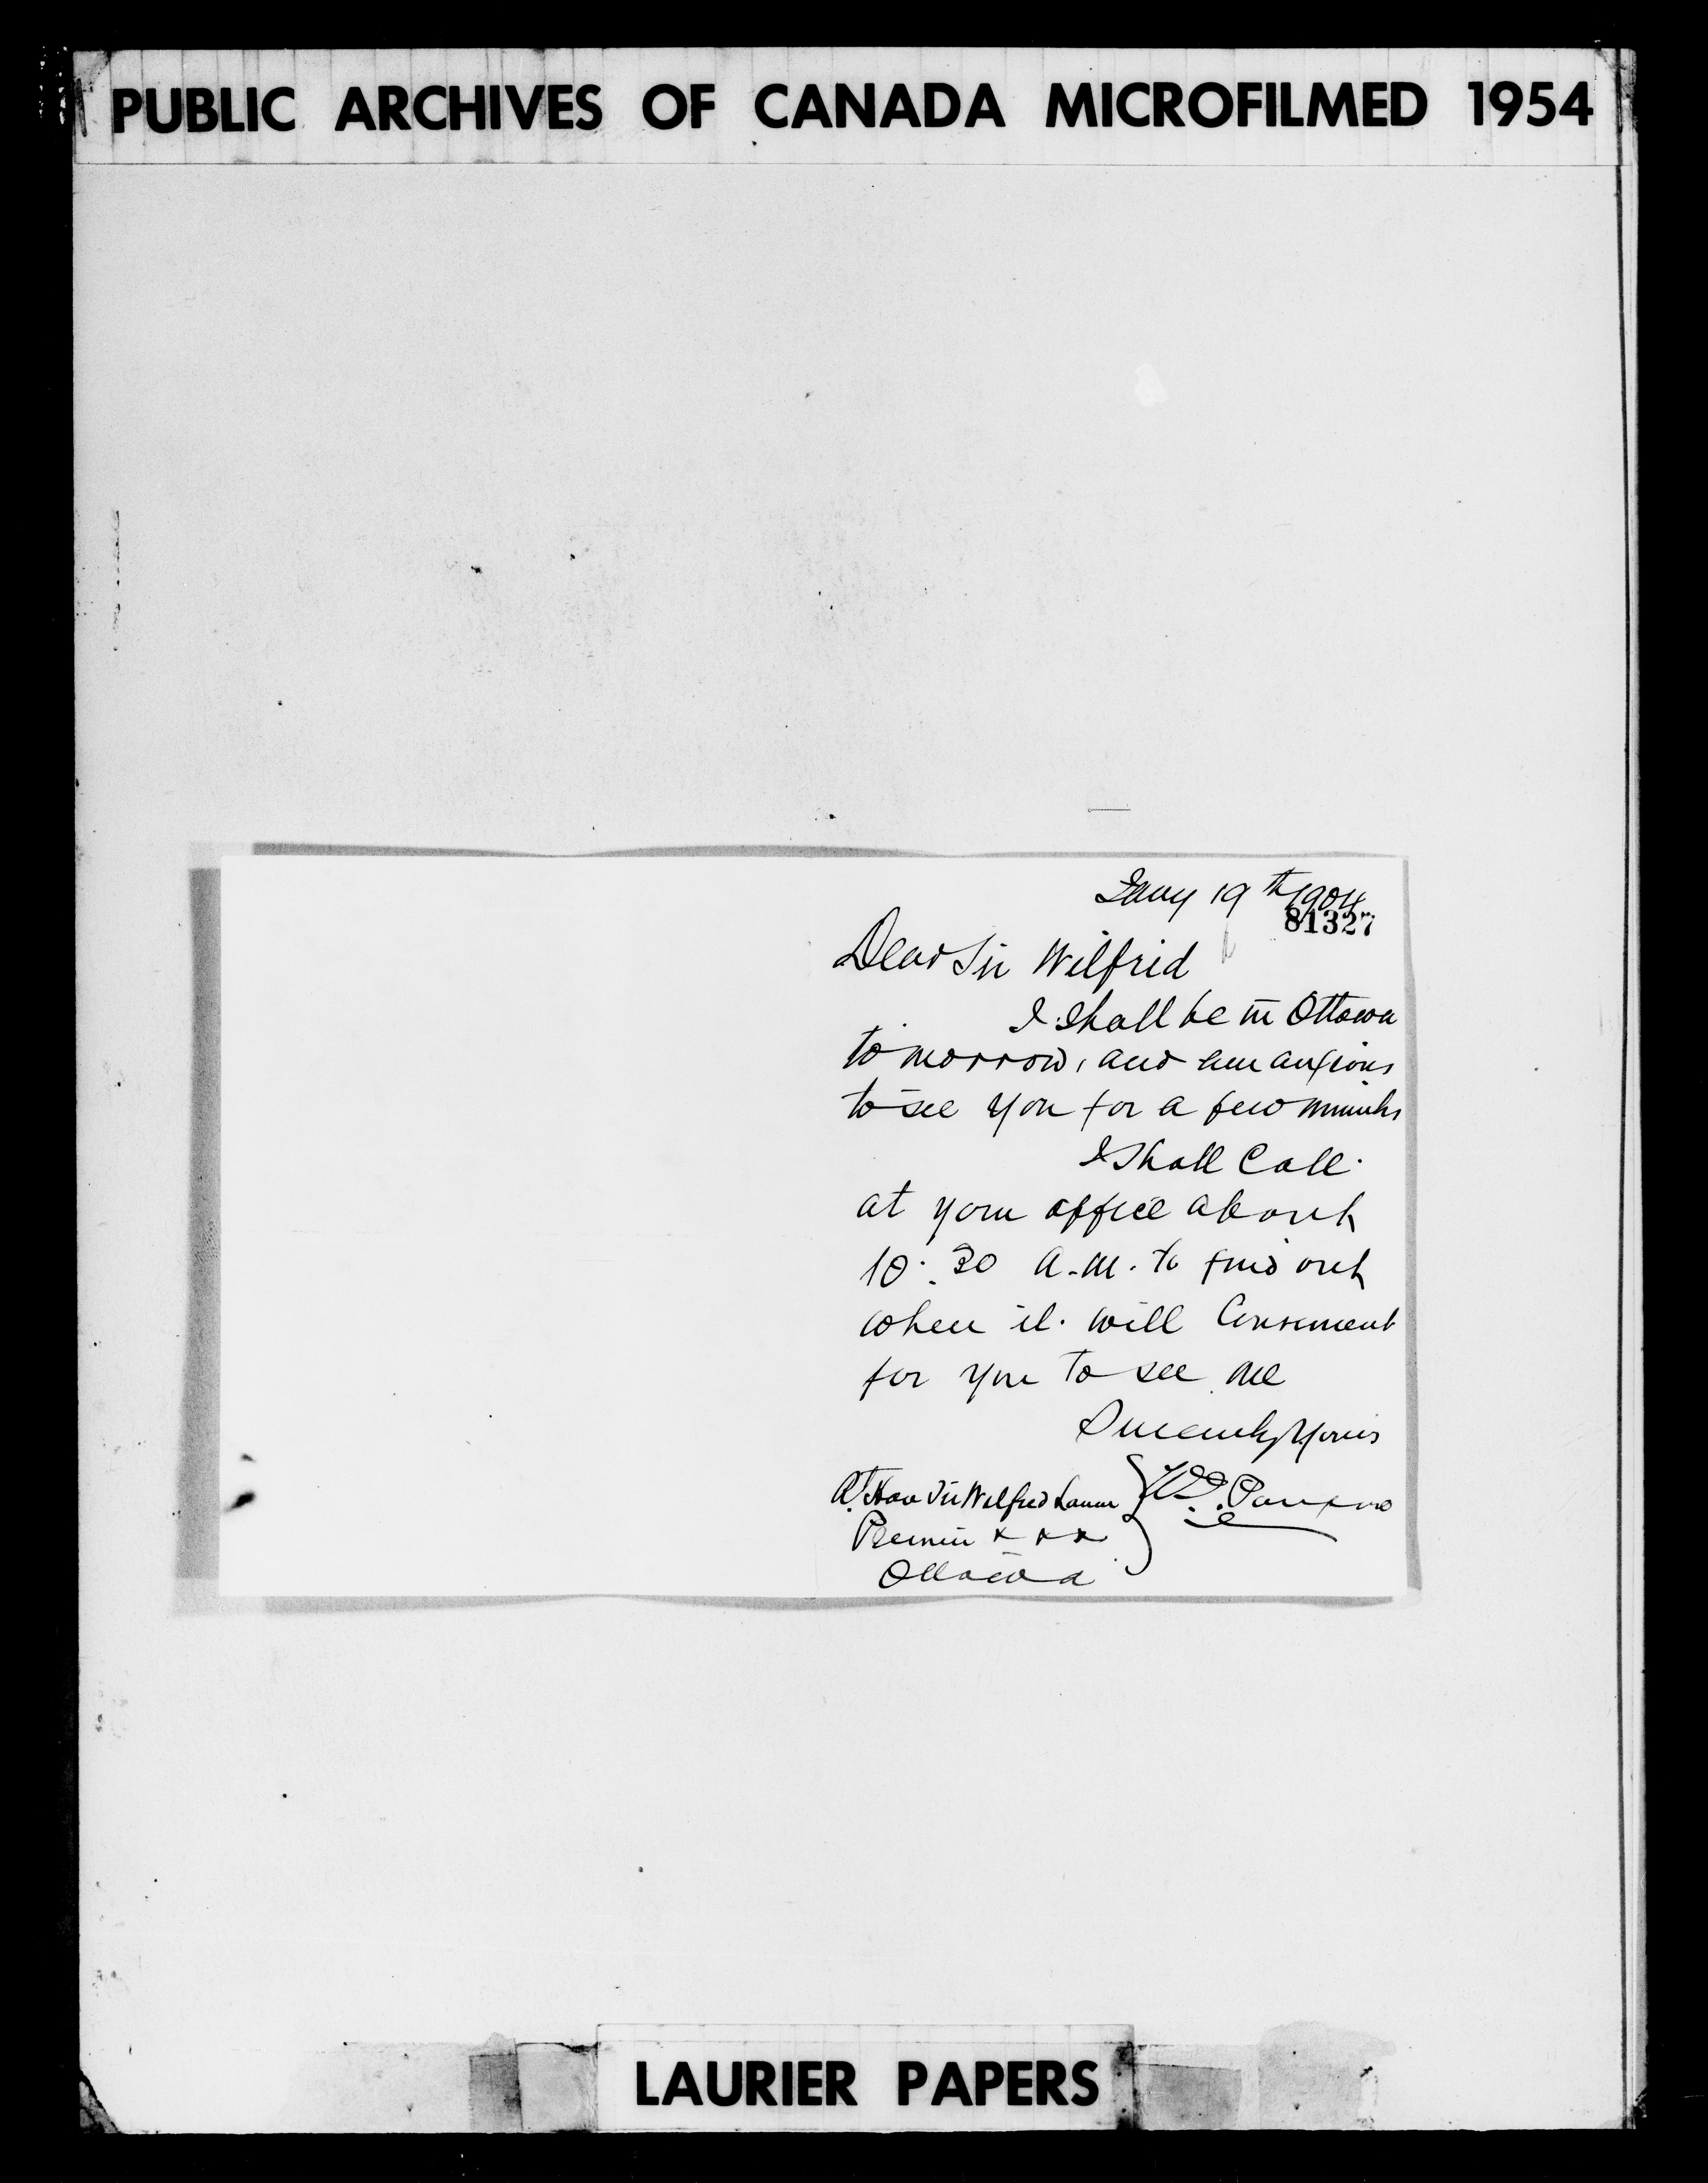 PUBLIC ARCHIVES OF CANADA MICROFILMED 1954
Jany 19th 1904
81327
Dear Sir Wilfrid
I shall be in Ottawa
to morrow, and am anxious
to see you for a few minutes
I shall call
at your office about
10:30 a.m. to find out
when it will convenient
for you to see me
Sincerely Yours
Rt Hon Sir Wilfred Laurier
Premier x x x
Ottawa
LAURIER PAPERS